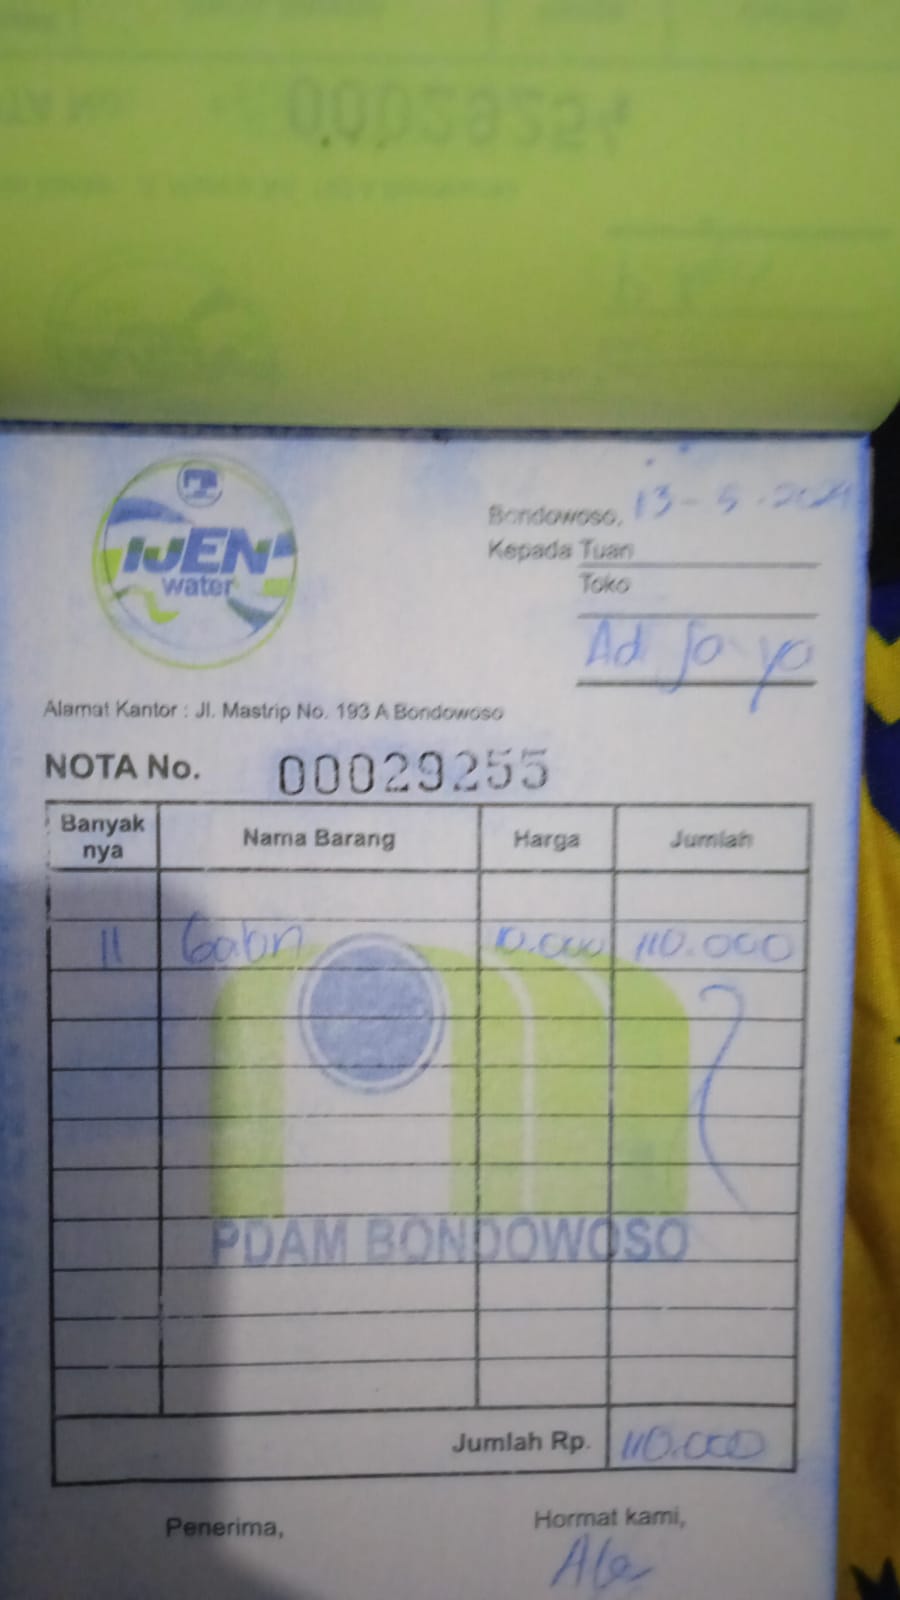 00029254
IJEN
water
Bondowoso, 13-5-2024
Kepada Tuan
Toko
Ad Jaya
Alamat Kantor : Jl. Mastrip No. 193 A Bondowoso
NOTA No. 00029255
Banyak nya Nama Barang Harga Jumlah
11 Galon 10.000 110.000
PDAM BONDOWOSO
Jumlah Rp. 110.000
Penerima, Hormat kami,